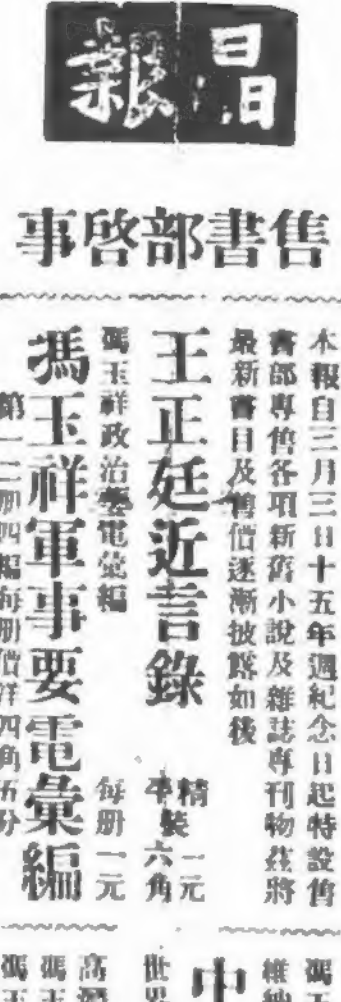 晶報
售書部啓事
本報自三月三日十五年週紀念日起特設售
書部專售各項新舊小說及雜誌專刊物茲將
最新書目及售價逐漸披露如後
王正廷近言錄
精裝一元
平裝六角
馮玉祥政治要電彙編
每册一元
馮玉祥軍事要電彙編
第一二册四編每册價洋四角五分
馮玉
維
中
世界
高
馮玉
馮玉